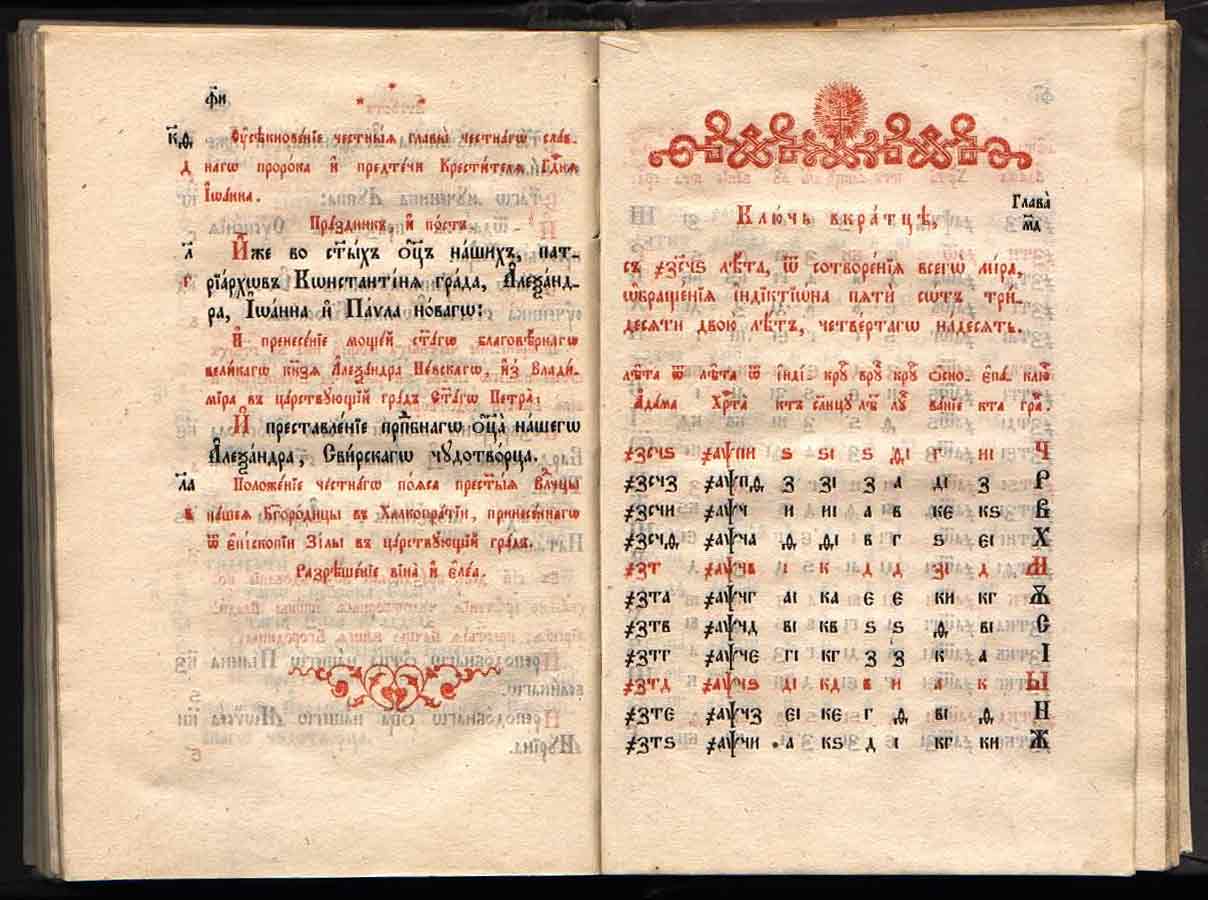 фн҃
к҃ѳ Ѹ҆сѣкнове́нїе честны́ѧ главы̀ честна́гѡ сла́в-
д наго проро́ка и҆ предте́чи Крести́телѧ Гдⷭ҇нѧ
І҆ѡа́нна.
Пра́здникъ, и҆ по́стъ.
л҃ И҆́же во ст҃ы́хъ ѻ҆ц҃ъ на́шихъ, пат-
г рїа́рхѡвъ Кѡнстанті́нѧ гра́да, А҆леѯа́нд-
ра, І҆ѡа́нна и҆ Па́ѵла но́вагѡ:
И҆ пренесе́нїе моще́й ст҃а́гѡ благовѣ́рнагѡ
вели́кагѡ кн҃зѧ А҆леѯа́ндра Не́вскагѡ, и҆з̾ Влади́-
мїра въ ца́рствѹющїй гра́дъ Ст҃а́гѡ Петра̀:
И҆ преставле́нїе прпⷣбнагѡ ѻ҆ц҃а̀ на́шегѡ
А҆леѯа́ндра, Сви́рскагѡ чѹдотво́рца.
л҃а Положе́нїе честна́гѡ по́ѧса прест҃ы́ѧ Влⷣчцы
в на́шеѧ Бг҃оро́дицы въ Халкопра́тїи, принесе́ннагѡ
ѿ є҆пископі́и Зи́лы въ ца́рствѹющїй гра́дъ.
Разрѣше́нїе вїна̀ и҆ є҆ле́а.
Глава̀
м҃а
Клю́чь вкра́тцѣ,
съ ҂зс҃чѕ лѣ́та, ѿ сотворе́нїѧ всегѡ̀ мі́ра,
ѡ҆браще́нїѧ і҆ндїктїѡ́на пѧтѝ со́тъ три́-
десѧти двою̀ лѣ́тъ, четве́ртагѡ на́десѧть.
лѣ́та ѿ лѣ́та ѿ і҆ндї крѹ́ врѹ́ крѹ́ ѻ҆сно є҆па клю́
А҆да́ма Хрⷭ҇та̀ ктъ сл҃нцѹ лѣ лѹ́ ва́нїе кта гра̀.
҂зсчѕ ҂аѱпи ѕ ѕі ѕ ѳі г иі Ч
҂зсчз ҂аѱпѳ з зі з а ді з Р
҂зсчи ҂аѱч и иі а в ке кѕ В
҂зсчѳ ҂аѱча ѳ ѳі в г ѕ еі Х
҂зт ҂аѱчв і к д д зі д М
҂зта ҂аѱчг аі ка є є ки кг Ѫ
҂зтв ҂аѱчд ві кв ѕ ѕ ѳ ві Є
҂зтг ҂аѱче гі кг з з к а І
҂зтд ҂аѱчѕ ді кд в и а к Ы
҂зте ҂аѱчз еі ке г ѳ ві ѳ Н
҂зтѕ ҂аѱчи а кѕ д і кг ки Ж